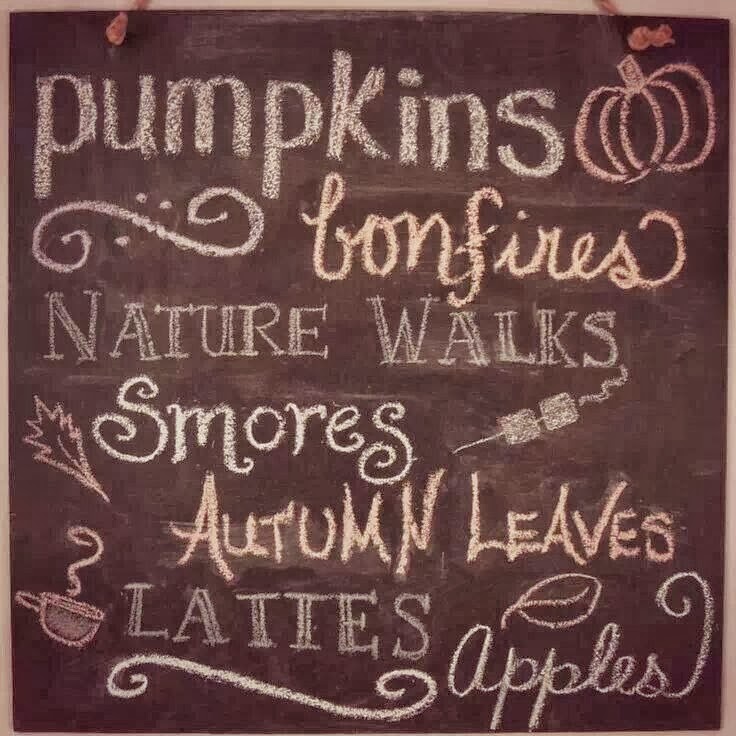 pumpkins
bonfires
NATURE WALKS
Smores
AUTUMN LEAVES
LATTES
Apples